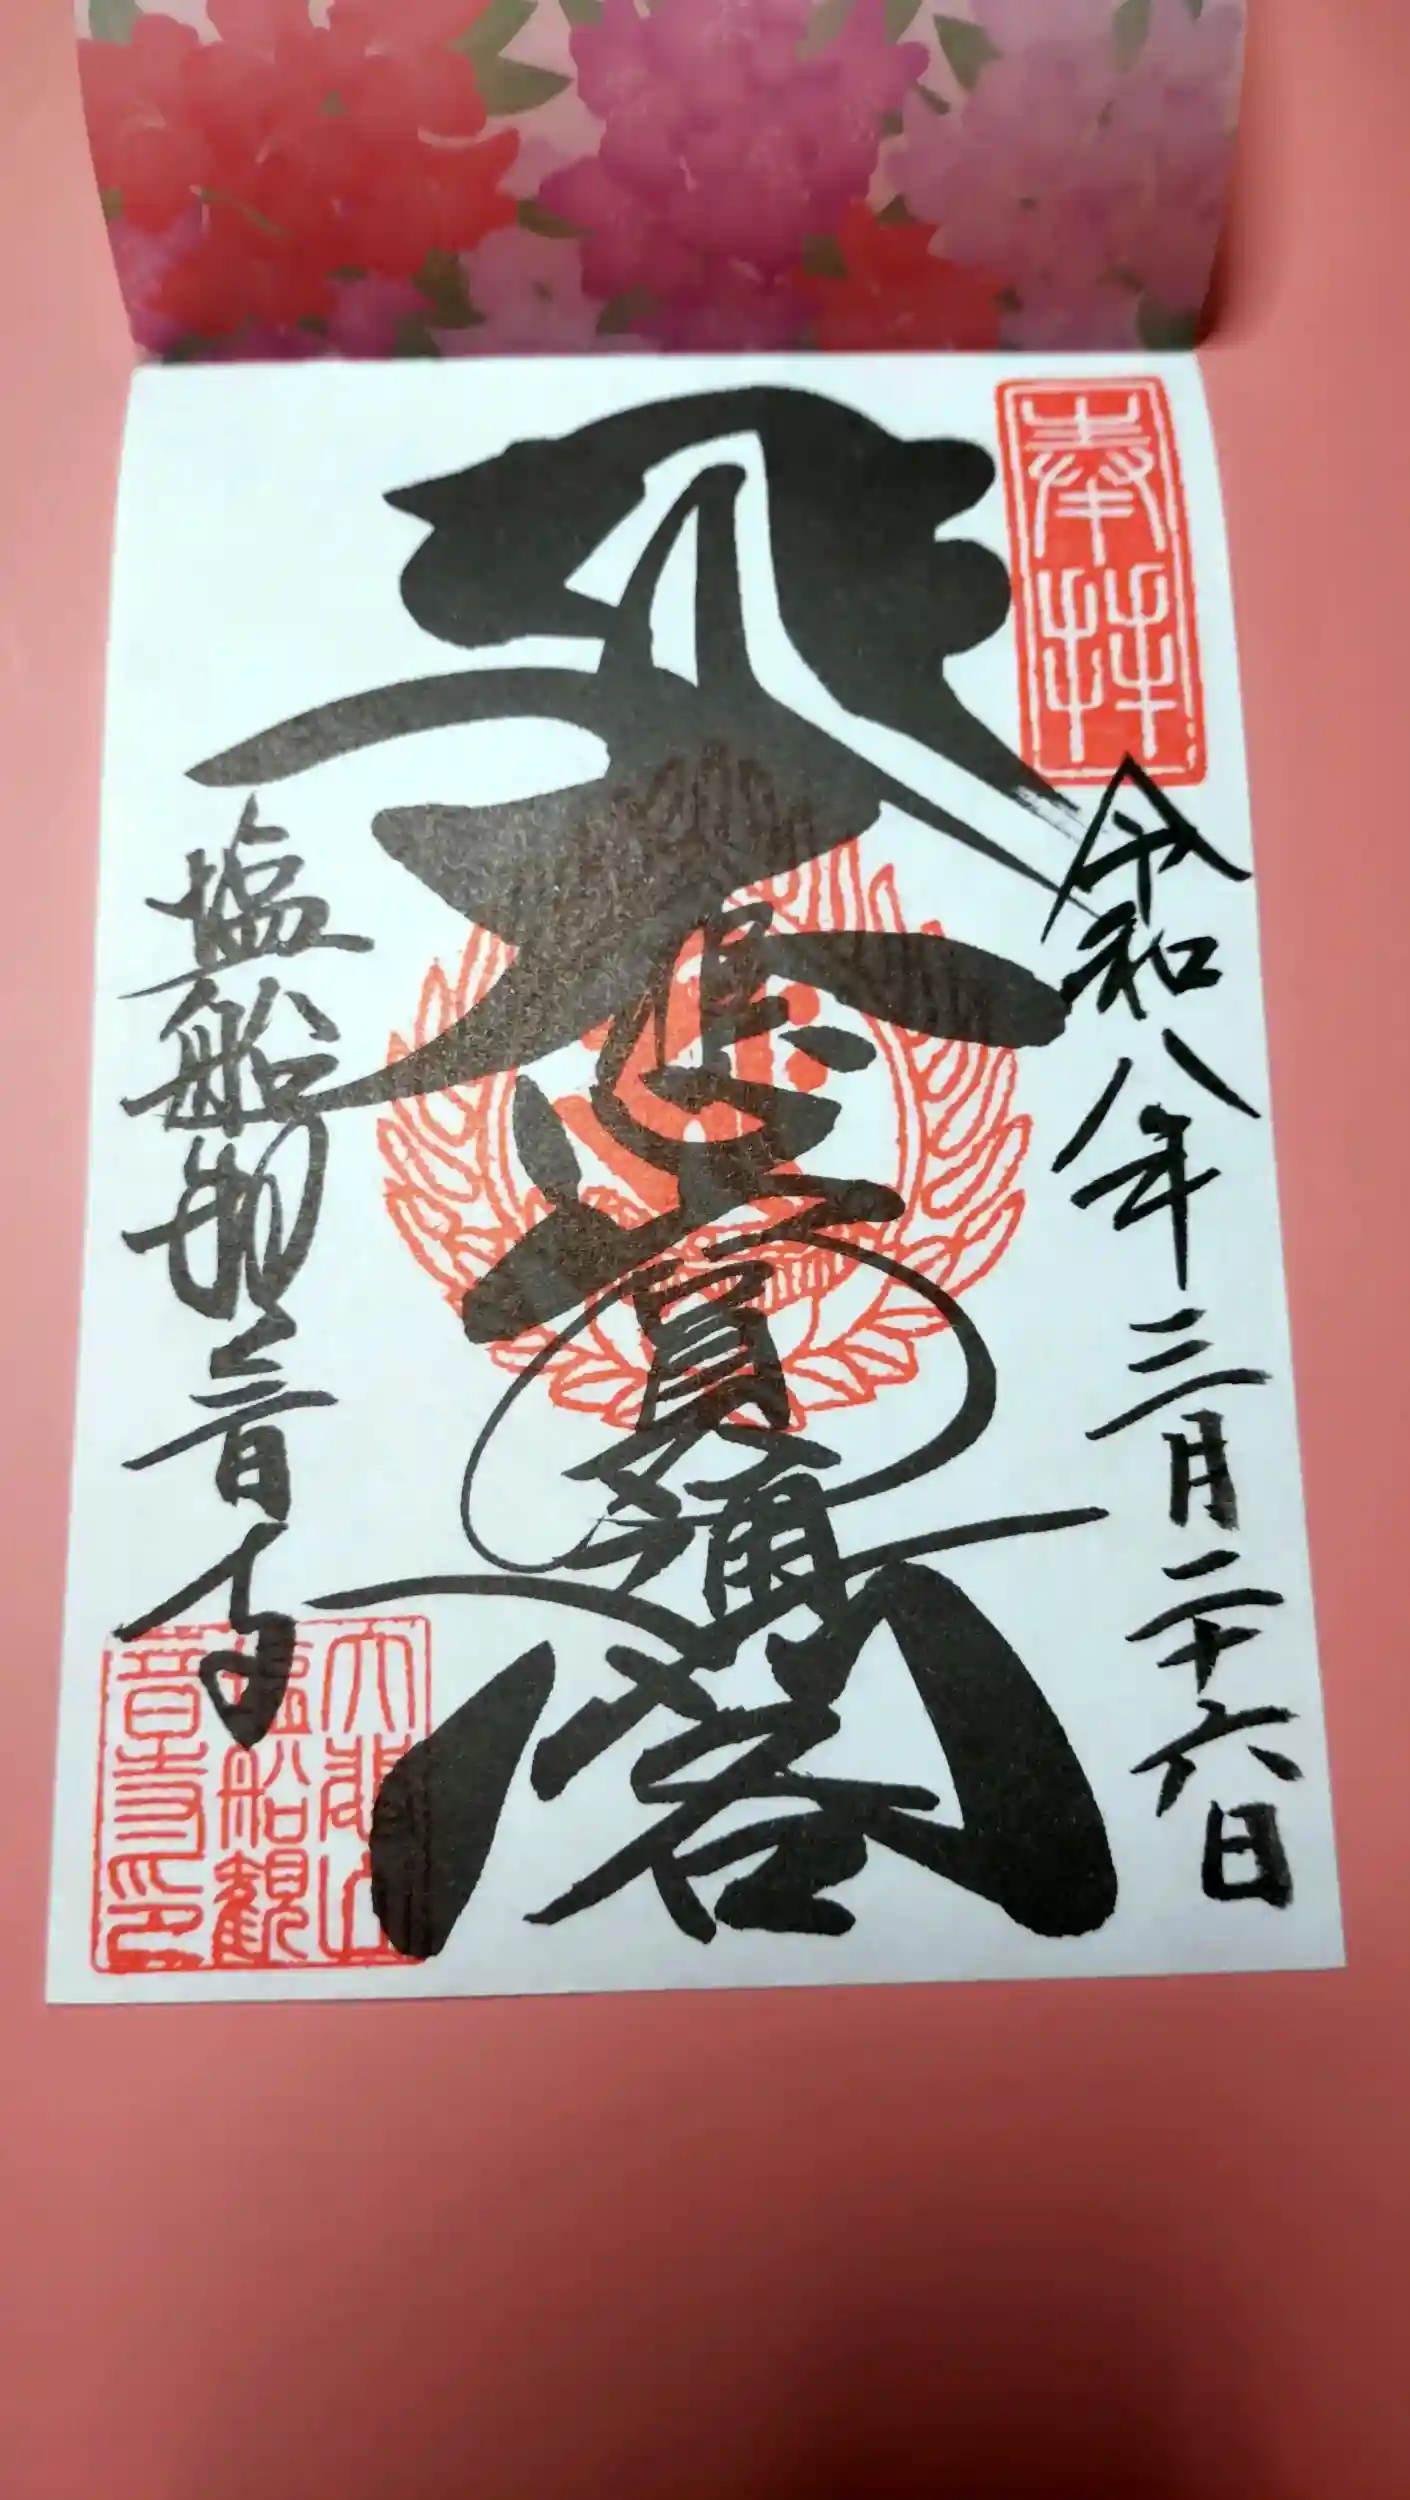 奉拝
令和八年三月二十六日
大悲圓通閣
塩船観音寺
大悲山
塩船観
音寺印